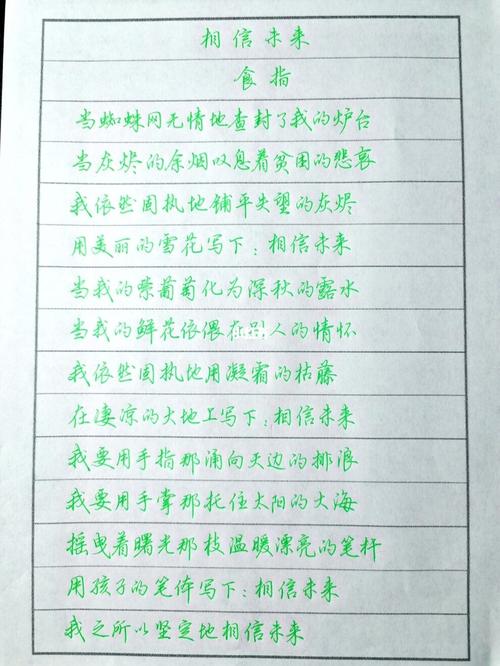 相信未来
食指
当蜘蛛网无情地查封了我的炉台
当灰烬的余烟叹息着贫困的悲哀
我依然固执地铺平失望的灰烬
用美丽的雪花写下：相信未来
当我的紫葡萄化为深秋的露水
当我的鲜花依偎在别人的情怀
我依然固执地用凝霜的枯藤
在凄凉的大地上写下：相信未来
我要用手指那涌向天边的排浪
我要用手掌那托住太阳的大海
摇曳着曙光那枝温暖漂亮的笔杆
用孩子的笔体写下：相信未来
我之所以坚定地相信未来